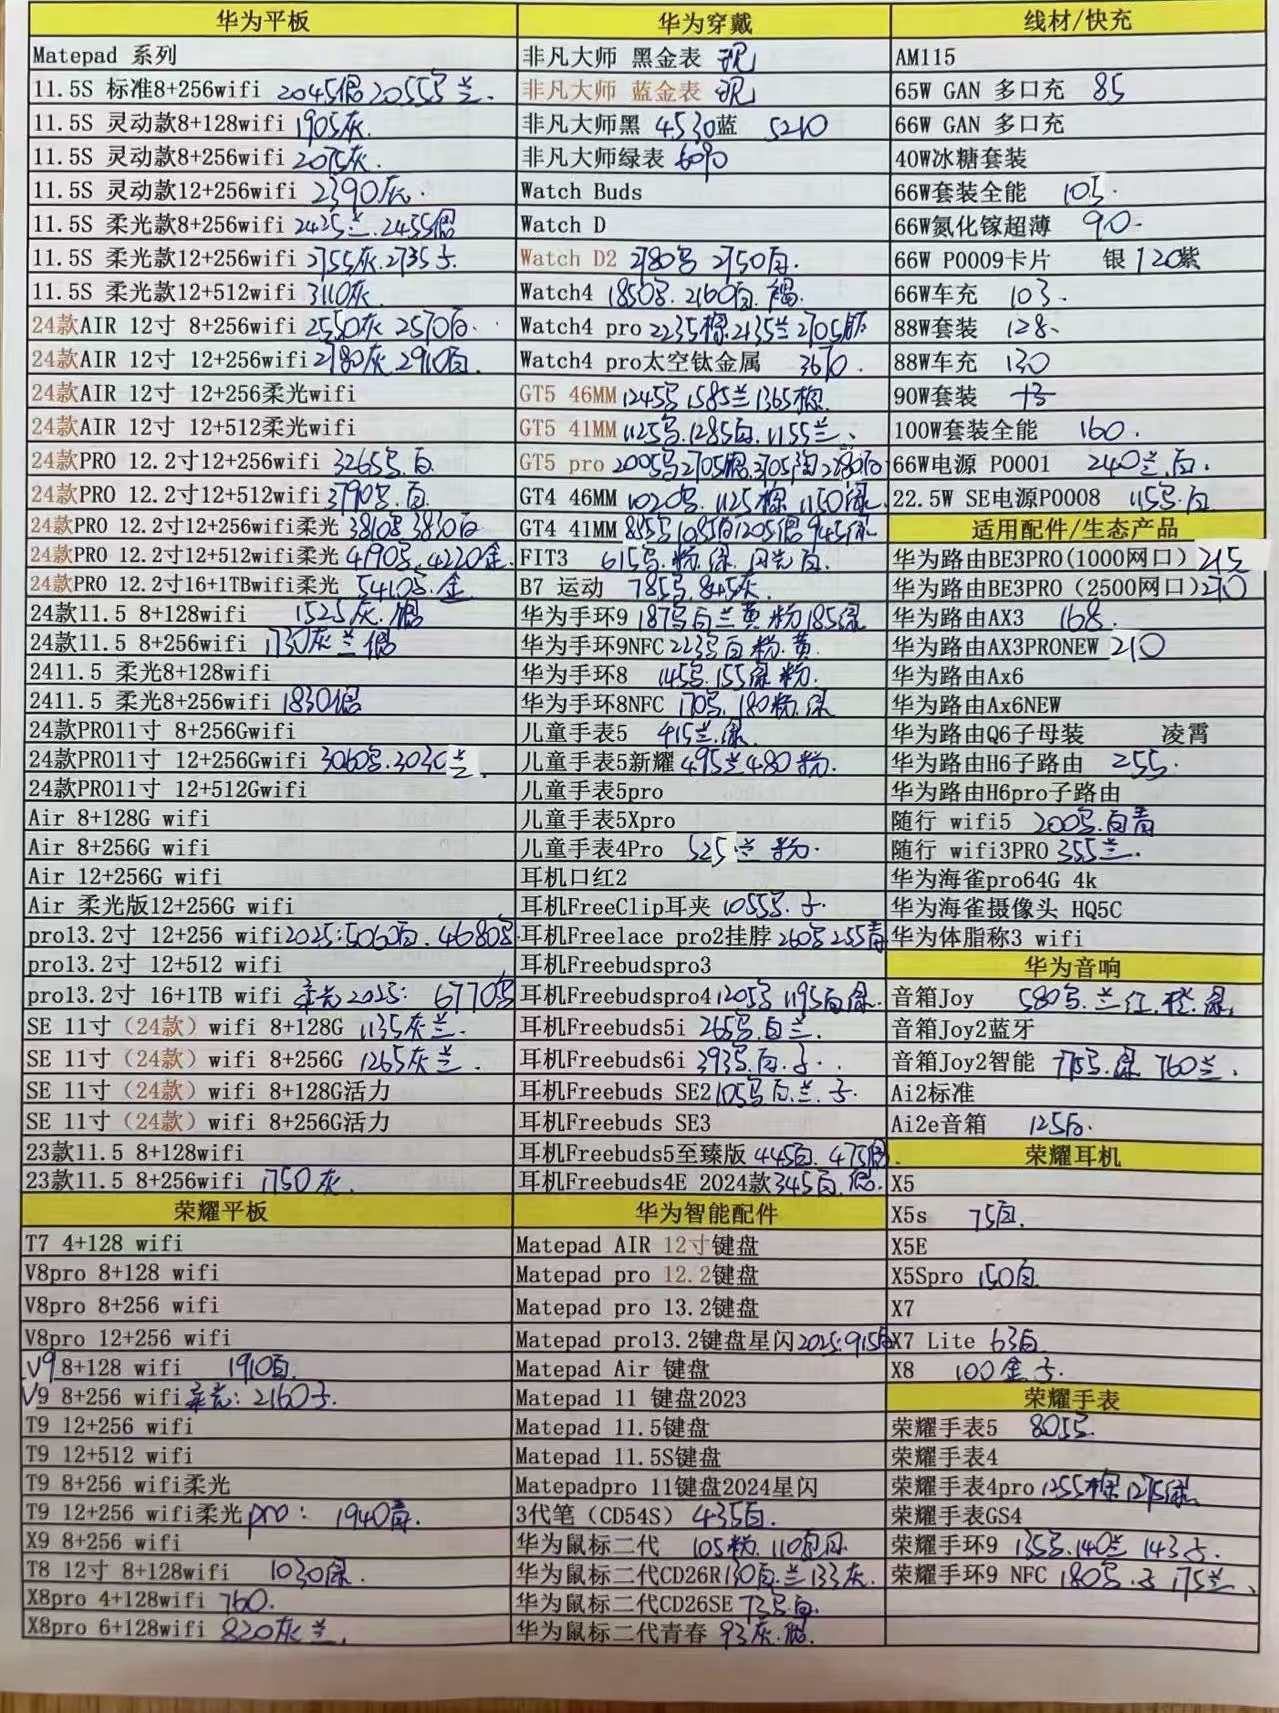 华为平板
Matepad 系列
11.5S 标准8+256wifi 2045 2055 兰.
11.5S 灵动款8+128wifi 1905灰.
11.5S 灵动款8+256wifi 2075灰.
11.5S 灵动款12+256wifi 2390灰.
11.5S 柔光款8+256wifi 2425兰.2455
11.5S 柔光款12+256wifi 2755灰.2735
11.5S 柔光款12+512wifi 3110灰.
24款AIR 12寸 8+256wifi 2550灰 2570白.
24款AIR 12寸 12+256wifi 2780灰 2910白.
24款AIR 12寸 12+256柔光wifi
24款AIR 12寸 12+512柔光wifi
24款PRO 12.2寸12+256wifi 3265 白
24款PRO 12.2寸12+512wifi 3790 白.
24款PRO 12.2寸12+256wifi柔光 3810 3830白
24款PRO 12.2寸12+512wifi柔光 4190 4220金.
24款PRO 12.2寸16+1TBwifi柔光 5410 金.
24款11.5 8+128wifi 1525灰.
24款11.5 8+256wifi 1730灰兰
2411.5 柔光8+128wifi
2411.5 柔光8+256wifi 1830
24款PRO11寸 8+256Gwifi
24款PRO11寸 12+256Gwifi 3060 3030兰.
24款PRO11寸 12+512Gwifi
Air 8+128G wifi
Air 8+256G wifi
Air 12+256G wifi
Air 柔光版12+256G wifi
pro13.2寸 12+256 wifi 2025:5060白.4680
pro13.2寸 12+512 wifi
pro13.2寸 16+1TB wifi 柔光2025: 6770
SE 11寸（24款）wifi 8+128G 1135灰兰.
SE 11寸（24款）wifi 8+256G 1265灰兰.
SE 11寸（24款）wifi 8+128G活力
SE 11寸（24款）wifi 8+256G活力
23款11.5 8+128wifi
23款11.5 8+256wifi 1750灰.
荣耀平板
T7 4+128 wifi
V8pro 8+128 wifi
V8pro 8+256 wifi
V8pro 12+256 wifi
V9 8+128 wifi 1910白.
V9 8+256 wifi 柔光:2160
T9 12+256 wifi
T9 12+512 wifi
T9 8+256 wifi柔光
T9 12+256 wifi柔光 pro: 1940青.
X9 8+256 wifi
T8 12寸 8+128wifi 1030绿.
X8pro 4+128wifi 760.
X8pro 6+128wifi 820灰兰.
华为穿戴
非凡大师 黑金表 现
非凡大师 蓝金表 现
非凡大师黑 4530蓝 5210
非凡大师绿表 6090
Watch Buds
Watch D
Watch D2 2780 2750白.
Watch4 1850 2160白.褐.
Watch4 pro 2235棕.2135兰2705
Watch4 pro太空钛金属 3670.
GT5 46MM 1245 1585兰1365棕.
GT5 41MM 1125 1285白.1155兰.
GT5 pro 2005 2705 3705陶2880白
GT4 46MM 1020 1125棕.1150绿.
GT4 41MM 855 1085白1205 945绿
FIT3 615 粉.绿. 白.
B7 运动 785 845灰.
华为手环9 187 白兰黄粉185绿
华为手环9NFC 223 白粉.黄.
华为手环8 145 155绿粉.
华为手环8NFC 170 180粉.绿
儿童手表5 415兰.绿.
儿童手表5新耀 495兰480粉.
儿童手表5pro
儿童手表5Xpro
儿童手表4Pro 525兰 粉.
耳机口红2
耳机FreeClip耳夹 1055
耳机Freelace pro2挂脖 260 255青
耳机Freebudspro3
耳机Freebudspro4 1205 1195白绿.
耳机Freebuds5i 265 白兰.
耳机Freebuds6i 393 白.
耳机Freebuds SE2 105 白.兰.
耳机Freebuds SE3
耳机Freebuds5至臻版 445白.475
耳机Freebuds4E 2024款 345白.
华为智能配件
Matepad AIR 12寸键盘
Matepad pro 12.2键盘
Matepad pro 13.2键盘
Matepad pro13.2键盘星闪 2025:915白
Matepad Air 键盘
Matepad 11 键盘2023
Matepad 11.5键盘
Matepad 11.5S键盘
Matepadpro 11键盘2024星闪
3代笔（CD54S） 435白.
华为鼠标二代 105粉.110
华为鼠标二代CD26R 130白.兰133灰.
华为鼠标二代CD26SE 73 白.
华为鼠标二代青春 93灰.
线材/快充
AM115
65W GAN 多口充 85
66W GAN 多口充
40W冰糖套装
66W套装全能 105.
66W氮化镓超薄 90.
66W P0009卡片 银 120紫
66W车充 103.
88W套装 128.
88W车充 130
90W套装
100W套装全能 160.
66W电源 P0001 240兰.白.
22.5W SE电源P0008 115 白
适用配件/生态产品
华为路由BE3PRO(1000网口) 215
华为路由BE3PRO (2500网口) 270
华为路由AX3 168.
华为路由AX3PRONEW 210
华为路由Ax6
华为路由Ax6NEW
华为路由Q6子母装 凌霄
华为路由H6子路由 255.
华为路由H6pro子路由
随行 wifi5 200 白青
随行 wifi3PRO 355兰.
华为海雀pro64G 4k
华为海雀摄像头 HQ5C
华为体脂称3 wifi
华为音响
音箱Joy 580 兰红.橙.绿.
音箱Joy2蓝牙
音箱Joy2智能 775 绿 760兰.
Ai2标准
Ai2e音箱 125白.
荣耀耳机
X5
X5s 75白.
X5E
X5Spro 150白
X7
X7 Lite 63白
X8 100金
荣耀手表
荣耀手表5 805
荣耀手表4
荣耀手表4pro 1255棕1275绿.
荣耀手表GS4
荣耀手环9 135 140兰 143
荣耀手环9 NFC 180 175兰.